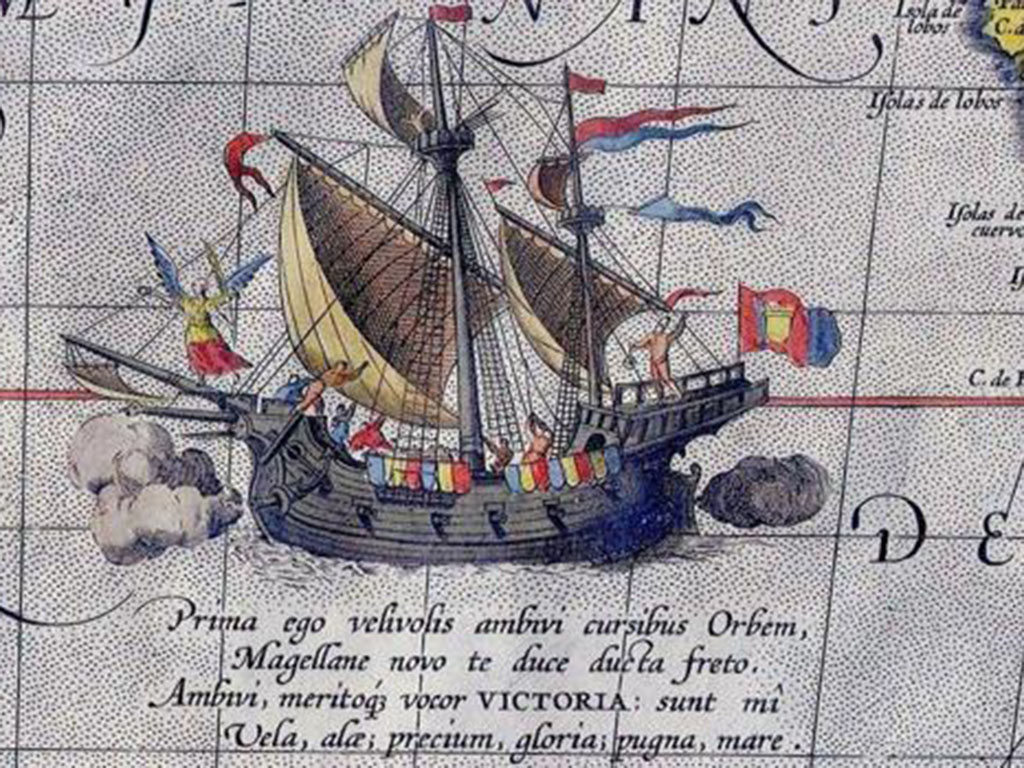 Isola de
lobos
C. d
Isolas de lobos
Isolas de
cuervo
C. de
D E
Prima ego velivolis ambivi cursibus Orbem,
Magellane novo te duce ducta freto.
Ambivi, meritoq₃ vocor VICTORIA: sunt mî
Vela, alæ; precium, gloria; pugna, mare.